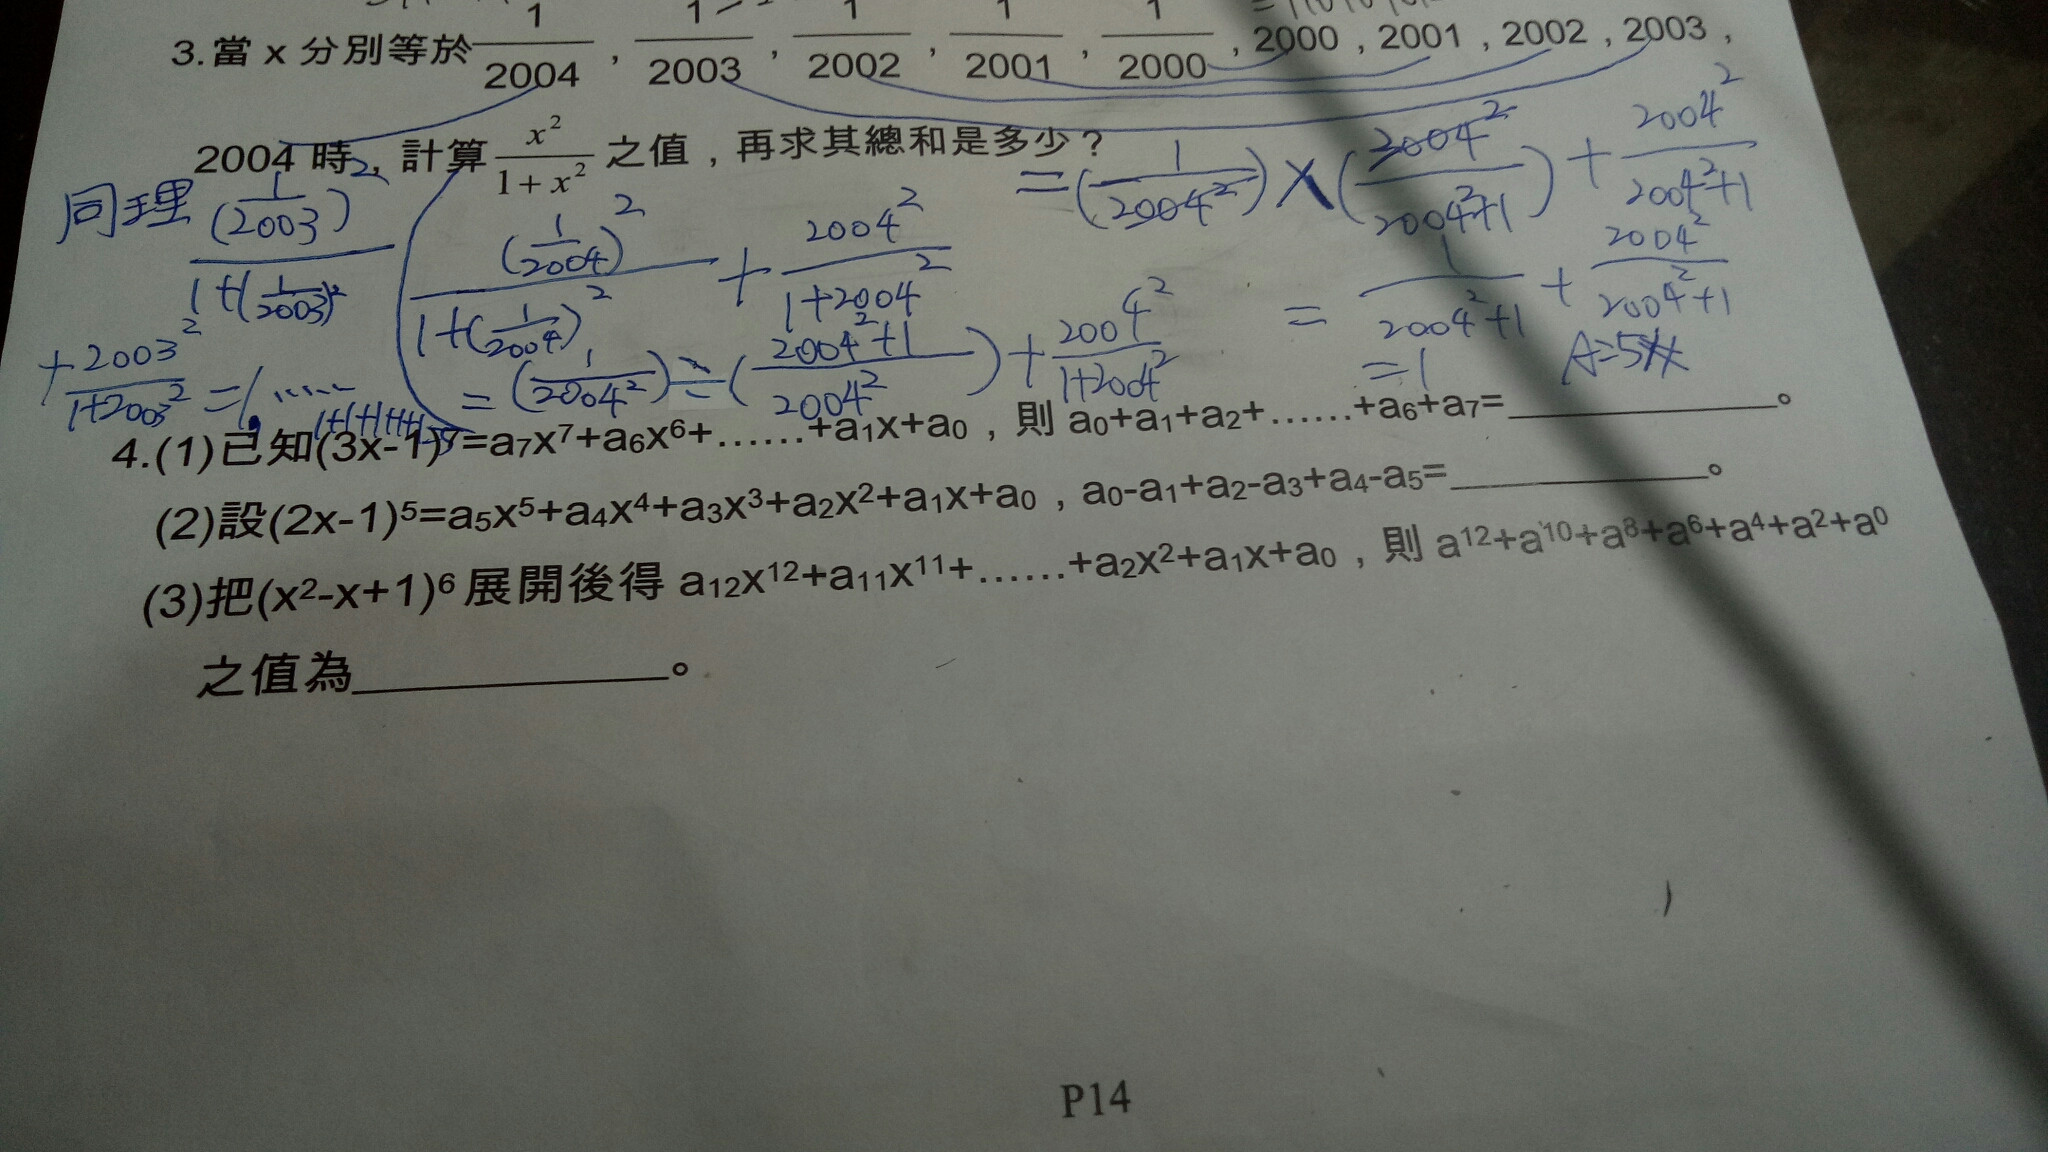 3.當 x 分別等於 1/2004 , 1/2003 , 1/2002 , 1/2001 , 1/2000 , 2000 , 2001 , 2002 , 2003 ,
2004 時, 計算 x²/(1+x²) 之值 , 再求其總和是多少 ?
= (1/2004²) × (2004²/(2004²+1)) + 2004²/(2004²+1)
同理 (1/2003)²/(1+(1/2003)²)
+ 2003²/(1+2003²) = 1, ……
(1/2004)²/(1+(1/2004)²) + 2004²/(1+2004²)
= (1/2004²) ÷ ((2004²+1)/2004²) + 2004²/(1+2004²)
= 1/(2004²+1) + 2004²/(2004²+1)
= 1
A=5
1+1+1+1+1=5
4.(1)已知(3x-1)⁷=a₇x⁷+a₆x⁶+……+a₁x+a₀ , 則 a₀+a₁+a₂+……+a₆+a₇=__________。
(2)設(2x-1)⁵=a₅x⁵+a₄x⁴+a₃x³+a₂x²+a₁x+a₀ , a₀-a₁+a₂-a₃+a₄-a₅=__________。
(3)把(x²-x+1)⁶展開後得 a₁₂x¹²+a₁₁x¹¹+……+a₂x²+a₁x+a₀ , 則 a¹²+a¹⁰+a⁸+a⁶+a⁴+a²+a⁰
之值為__________。
P14